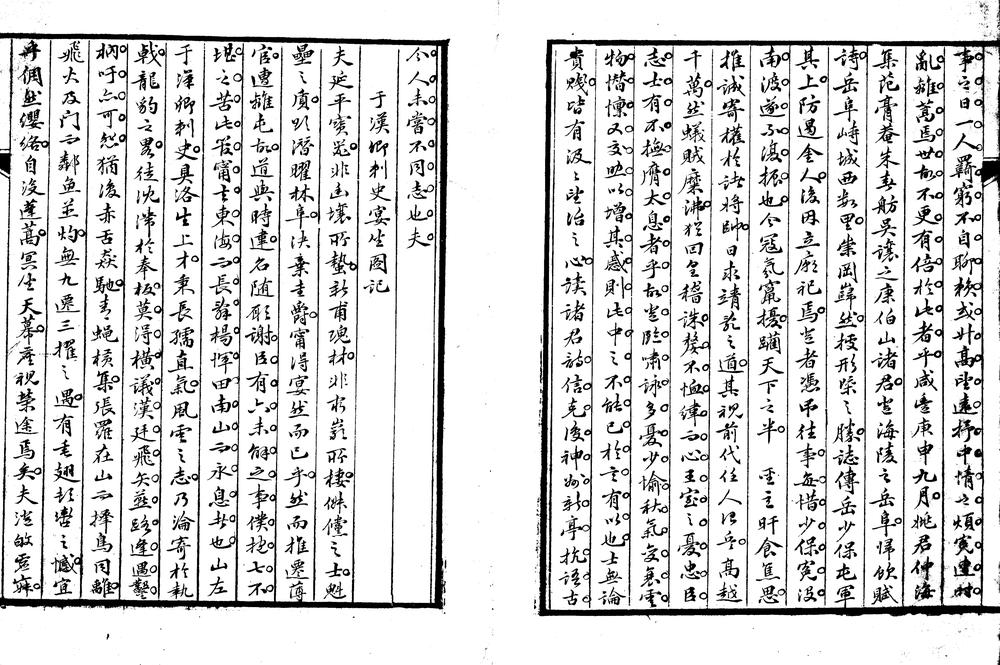 事之日一人羇窮不自聊棭或升高望遠抒中情之煩寃連時
亂離蒿焉世故不更有倍於此者乎咸豐庚申九月姚君仲海
集范膏菴朱春舫吳讓之康伯山諸君登海陵之岳阜歸飲賦
詩岳阜峙城西數里崇岡巋然披形勝之勝誌傳岳少保屯軍
其上防遏金人後因立廟祀焉登者憑弔往事每惜少保寃沒
南渡遂不復振也今冠氛竄擾躪天下之半 聖主旰食焦思
推誠寄權於諸將帥日求靖亂之道其視前代任人沮兵高越
千萬然蟻賊糜沸猶回皇稽誅嫠不恤緯而心王室之憂忠臣
志士有不撫膺太息者乎故登臨嘯詠多憂少愉秋氣變衰雲
物憯悽又交助以增其感則此中之不能已於言有以也士無論
貴賤皆有汲汲望治之心讀諸君詩信克後神州新亭抗議古
今人未嘗不同志也夫
于漢卿刺史宴坐圖記
夫延平寳氣非幽壤所蟄新甫瑰材非窮巖所棲倜儻之士魁
壘之質跡潛曜林阜決棄圭爵甯得宴然而已乎然而推遷薄
官遭離屯故道與時違名随形謝臣有六未解之事僕抱七不
堪之苦此管甯士東海而長辭楊惲田南山而永息者也山左
于漢卿刺史具洛生上才秉長孺直氣風雲之志乃淪寄於執
戟龍豹之畧徒沈滯於奉板莫得橫議漢廷飛矢燕路逢遇鑿
枘吁亦可怨猶復赤舌猋馳青蠅橫集張羅在山而擇鳥同離
飛火及門而鄰魚並灼無九遷三擢之遇有毛翅彭鸞之憾宜
再倜然纓絡自沒蓬蒿冥坐天幕塵視榮途焉矣夫淡故雲寐